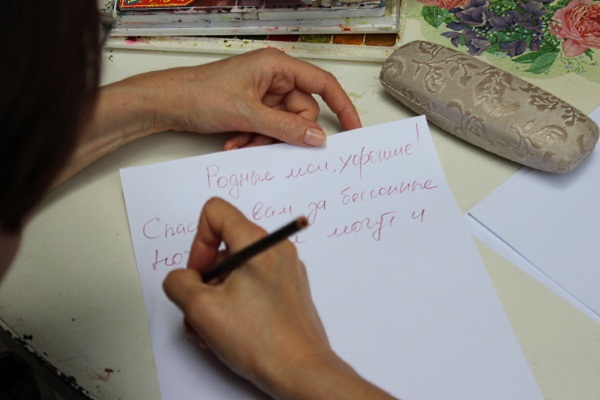 Родные мои, хорошие!
вам за бессонные
могут и